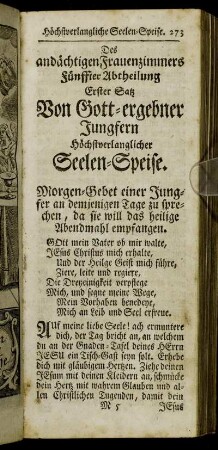 Höchstverlangliche Seelen-Speise. 273
Des
andächtigen Frauenzimmers
Fünffter Abtheilung
Erster Satz
Von Gott-ergebner
Jungfern
Höchstverlanglicher
Seelen-Speise.
Morgen-Gebet einer Jung-
fer an demjenigen Tage zu spre-
chen, da sie will das heilige
Abendmahl empfangen.
GOtt mein Vater ob mir walte,
JEsus Christus mich erhalte,
Und der Heilge Geist mich führe,
Ziere, leite und regiere,
Die Dreyeinigkeit verpflege
Mich, und segne meine Wege,
Mein Vorhaben benedeye,
Mich an Leib und Seel erfreue.
AUf meine liebe Seele! ach ermuntere
dich, der Tag bricht an, an welchem
du an der Gnaden-Tafel deines HErrn
JESU ein Tisch-Gast seyn solt. Erhebe
dich mit gläubigem Hertzen. Ziehe deinen
JEsum mit deinen Kleidern an, schmücke
dein Hertz mit wahrem Glauben und al-
len Christlichen Tugenden, damit dein
M 5 JEsus